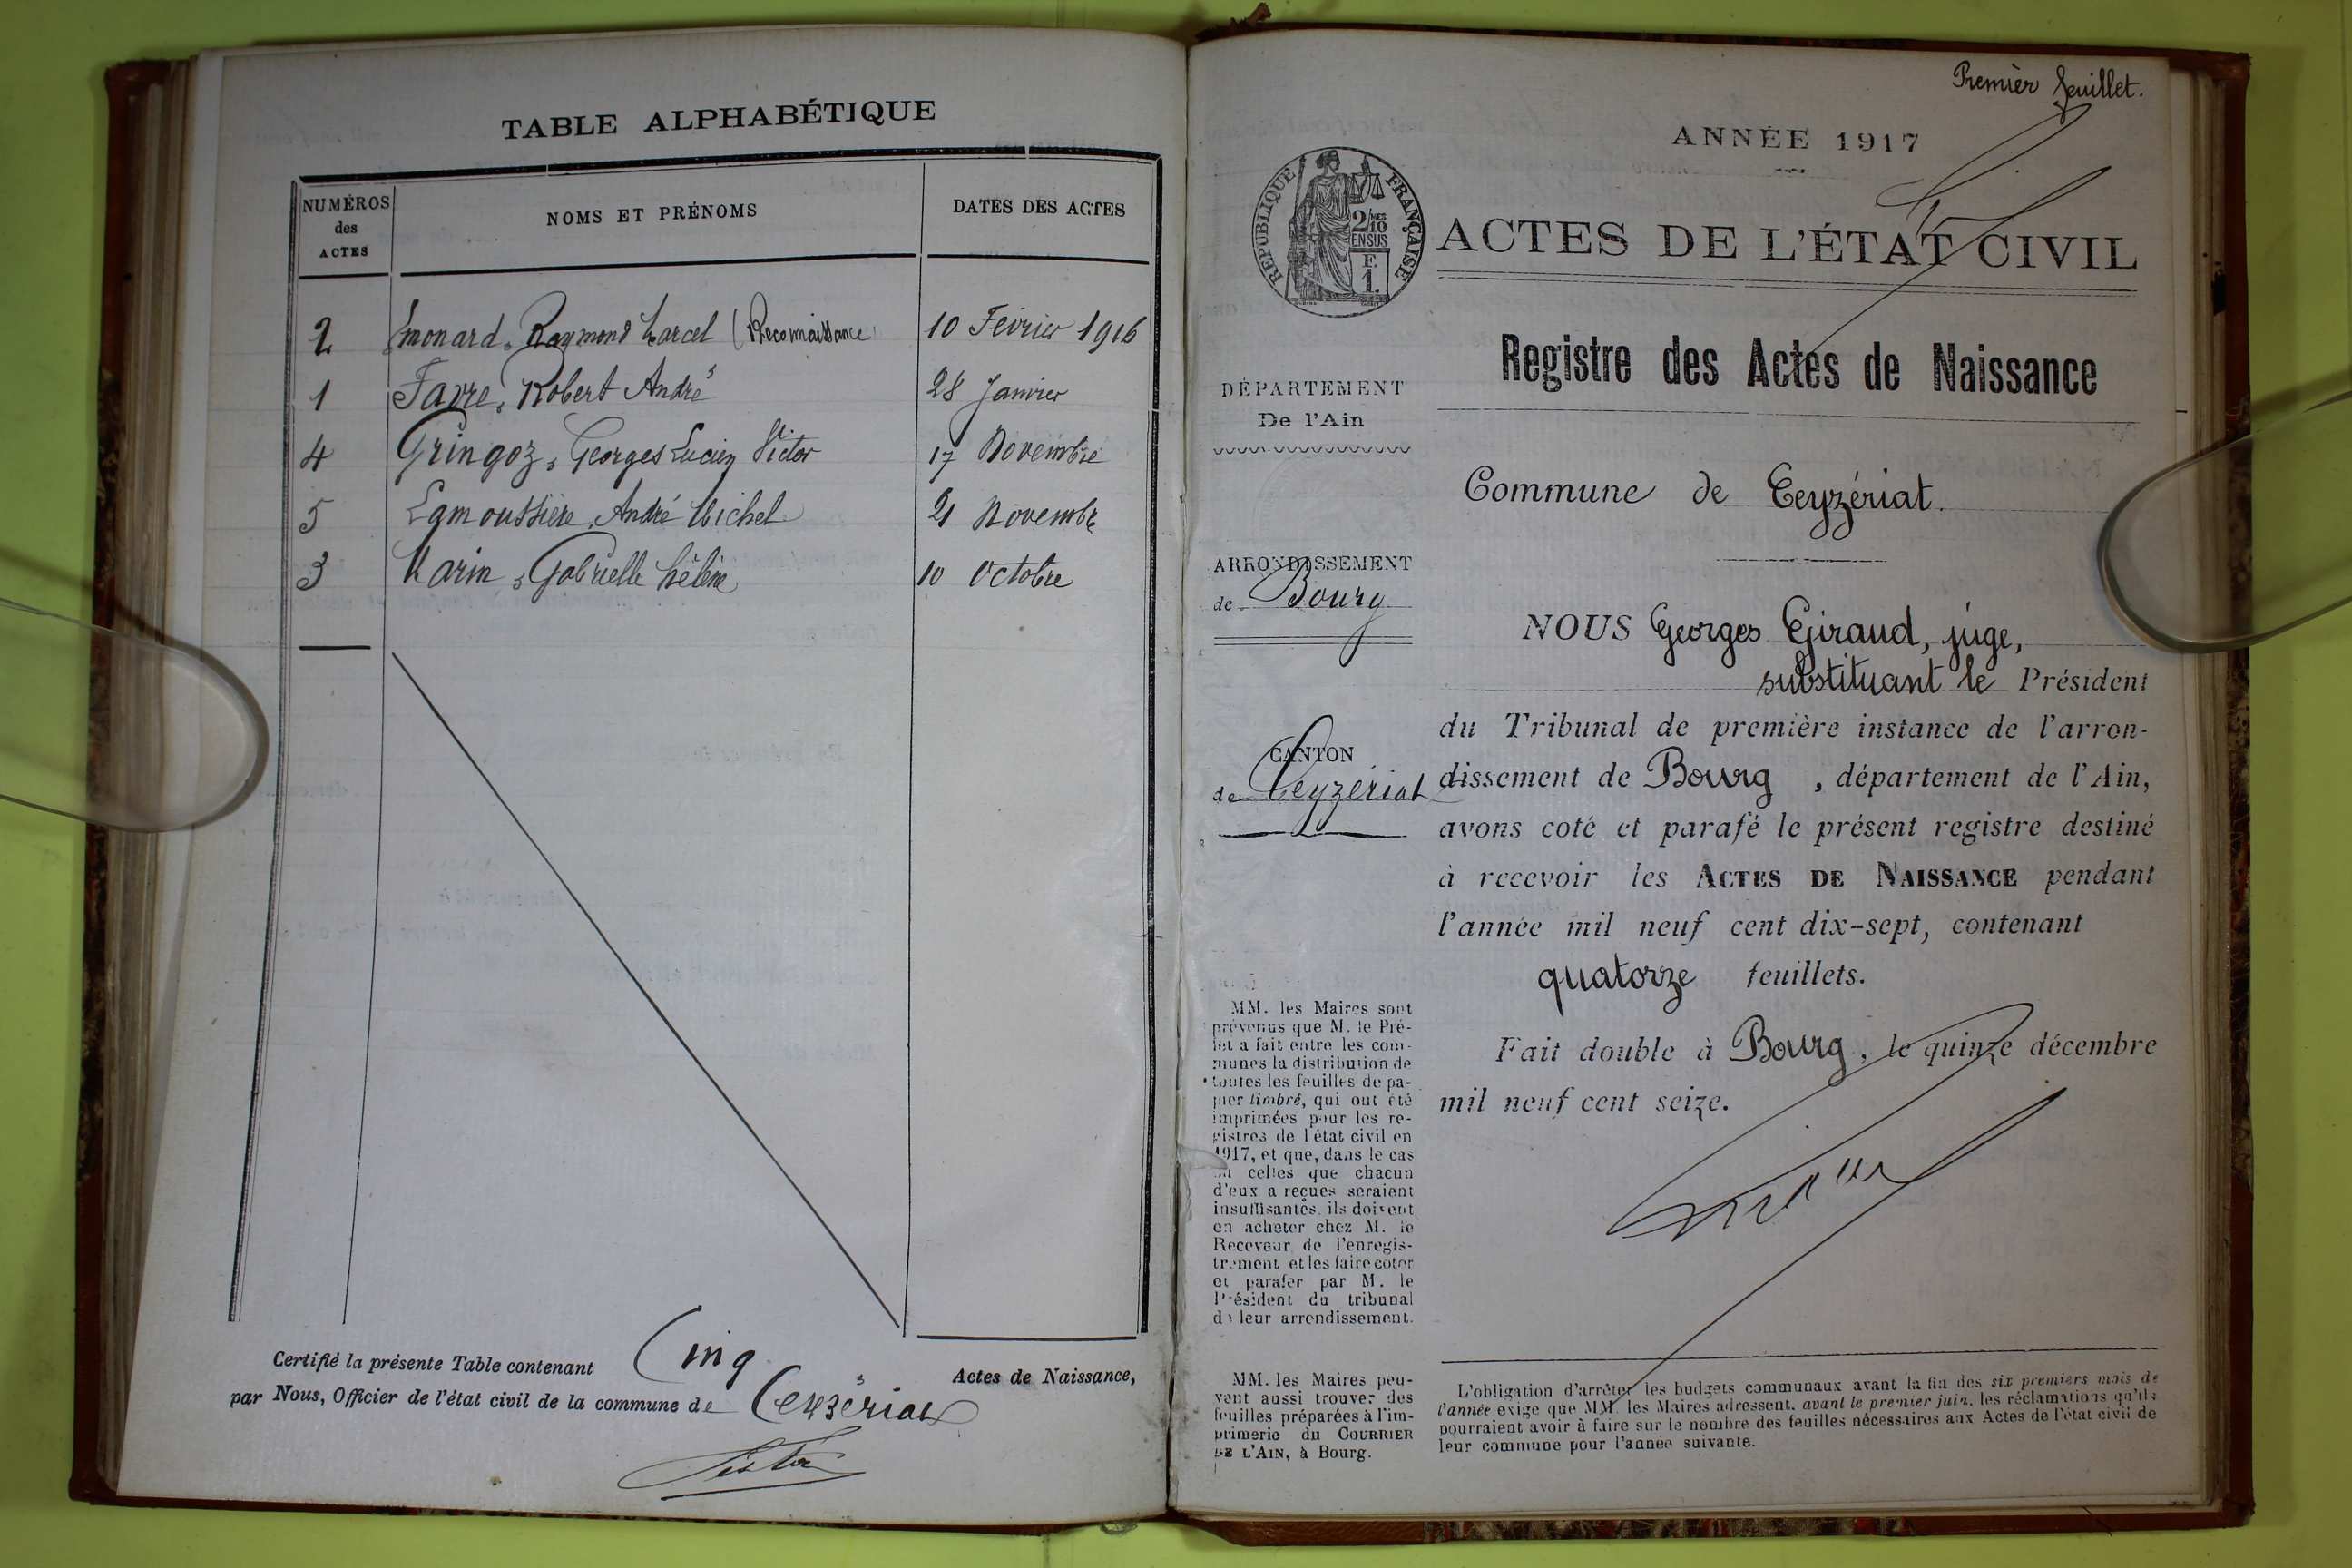 TABLE ALPHABÉTIQUE
NUMÉROS des ACTES
NOMS ET PRÉNOMS
DATES DES ACTES
2 Emonard, Raymond Marcel (Reconnaissance) 10 Février 1916
1 Favre, Robert André 28 Janvier
4 Gringoz, Georges Lucien Victor 17 Novembre
5 Lamoussière, André Michel 21 Novembre
3 Marin, Gabrielle Hélène 10 Octobre
Certifié la présente Table contenant Cinq Actes de Naissance,
par Nous, Officier de l'état civil de la commune de Ceyzériat
Premier feuillet.
ANNÉE 1917
RÉPUBLIQUE FRANÇAISE
2/10 EN SUS
F. 1.
ACTES DE L'ÉTAT CIVIL
Registre des Actes de Naissance
DÉPARTEMENT
De l'Ain
Commune de Ceyzériat.
ARRONDISSEMENT
de Bourg
CANTON
de Ceyzériat
NOUS Georges Giraud, juge,
substituant le Président
du Tribunal de première instance de l'arron-
dissement de Bourg, département de l'Ain,
avons coté et parafé le présent registre destiné
à recevoir les ACTES DE NAISSANCE pendant
l'année mil neuf cent dix-sept, contenant
quatorze feuillets.
Fait double à Bourg, le quinze décembre
mil neuf cent seize.
MM. les Maires sont
prévenus que M. le Pré-
fet a fait entre les com-
munes la distribution de
toutes les feuilles de pa-
pier timbré, qui ont été
imprimées pour les re-
gistres de l'état civil en
1917, et que, dans le cas
où celles que chacun
d'eux a reçues seraient
insuffisantes, ils doivent
en acheter chez M. le
Receveur de l'enregis-
trement et les faire coter
et parafer par M. le
Président du tribunal
de leur arrondissement.
MM. les Maires peu-
vent aussi trouver des
feuilles préparées à l'im-
primerie du COURRIER
DE L'AIN, à Bourg.
L'obligation d'arrêter les budgets communaux avant la fin des six premiers mois de
l'année exige que MM. les Maires adressent, avant le premier juin, les réclamations qu'ils
pourraient avoir à faire sur le nombre des feuilles nécessaires aux Actes de l'état civil de
leur commune pour l'année suivante.